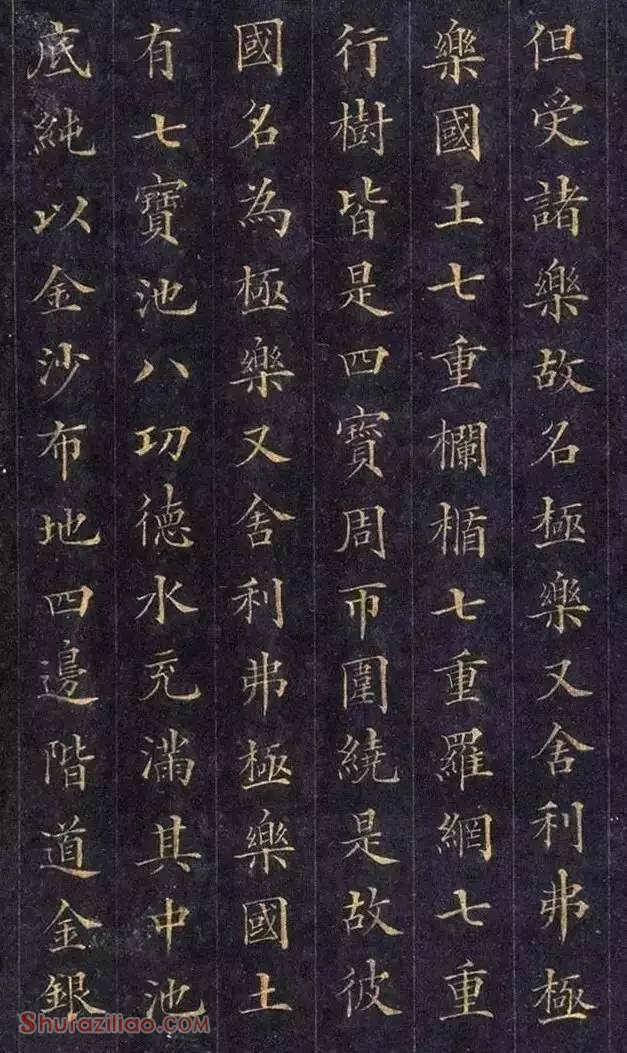 但受諸樂故名極樂又舍利弗極
樂國土七重欄楯七重羅網七重
行樹皆是四寶周帀圍繞是故彼
國名為極樂又舍利弗極樂國土
有七寶池八功德水充滿其中池
底純以金沙布地四邊階道金銀
Shufaziliao.COM